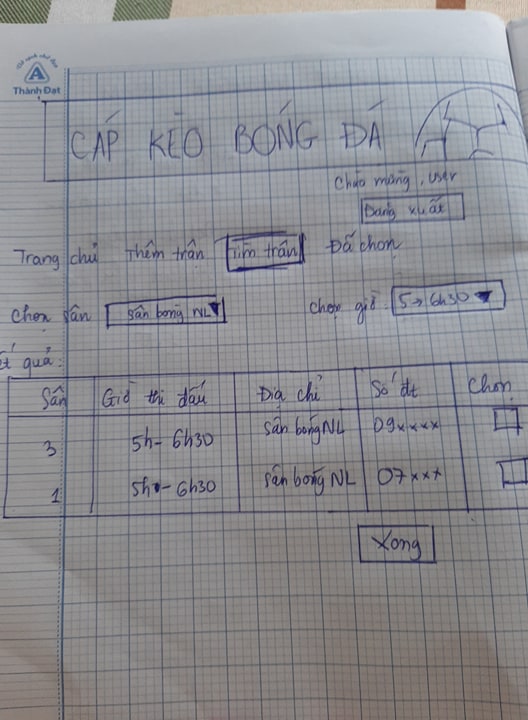 Thành Đạt
CÁP KÈO BÓNG ĐÁ
Chào mừng, user
Đăng xuất
Trang chủ Thêm trận Tìm trận Đã chọn
Chọn sân Sân bóng NL Chọn giờ 5→6h30
ết quả:
Sân Giờ thi đấu Địa chỉ Số đt Chọn
3 5h-6h30 Sân bóng NL 09xxxx
1 5h-6h30 Sân bóng NL 07xxx
Xong